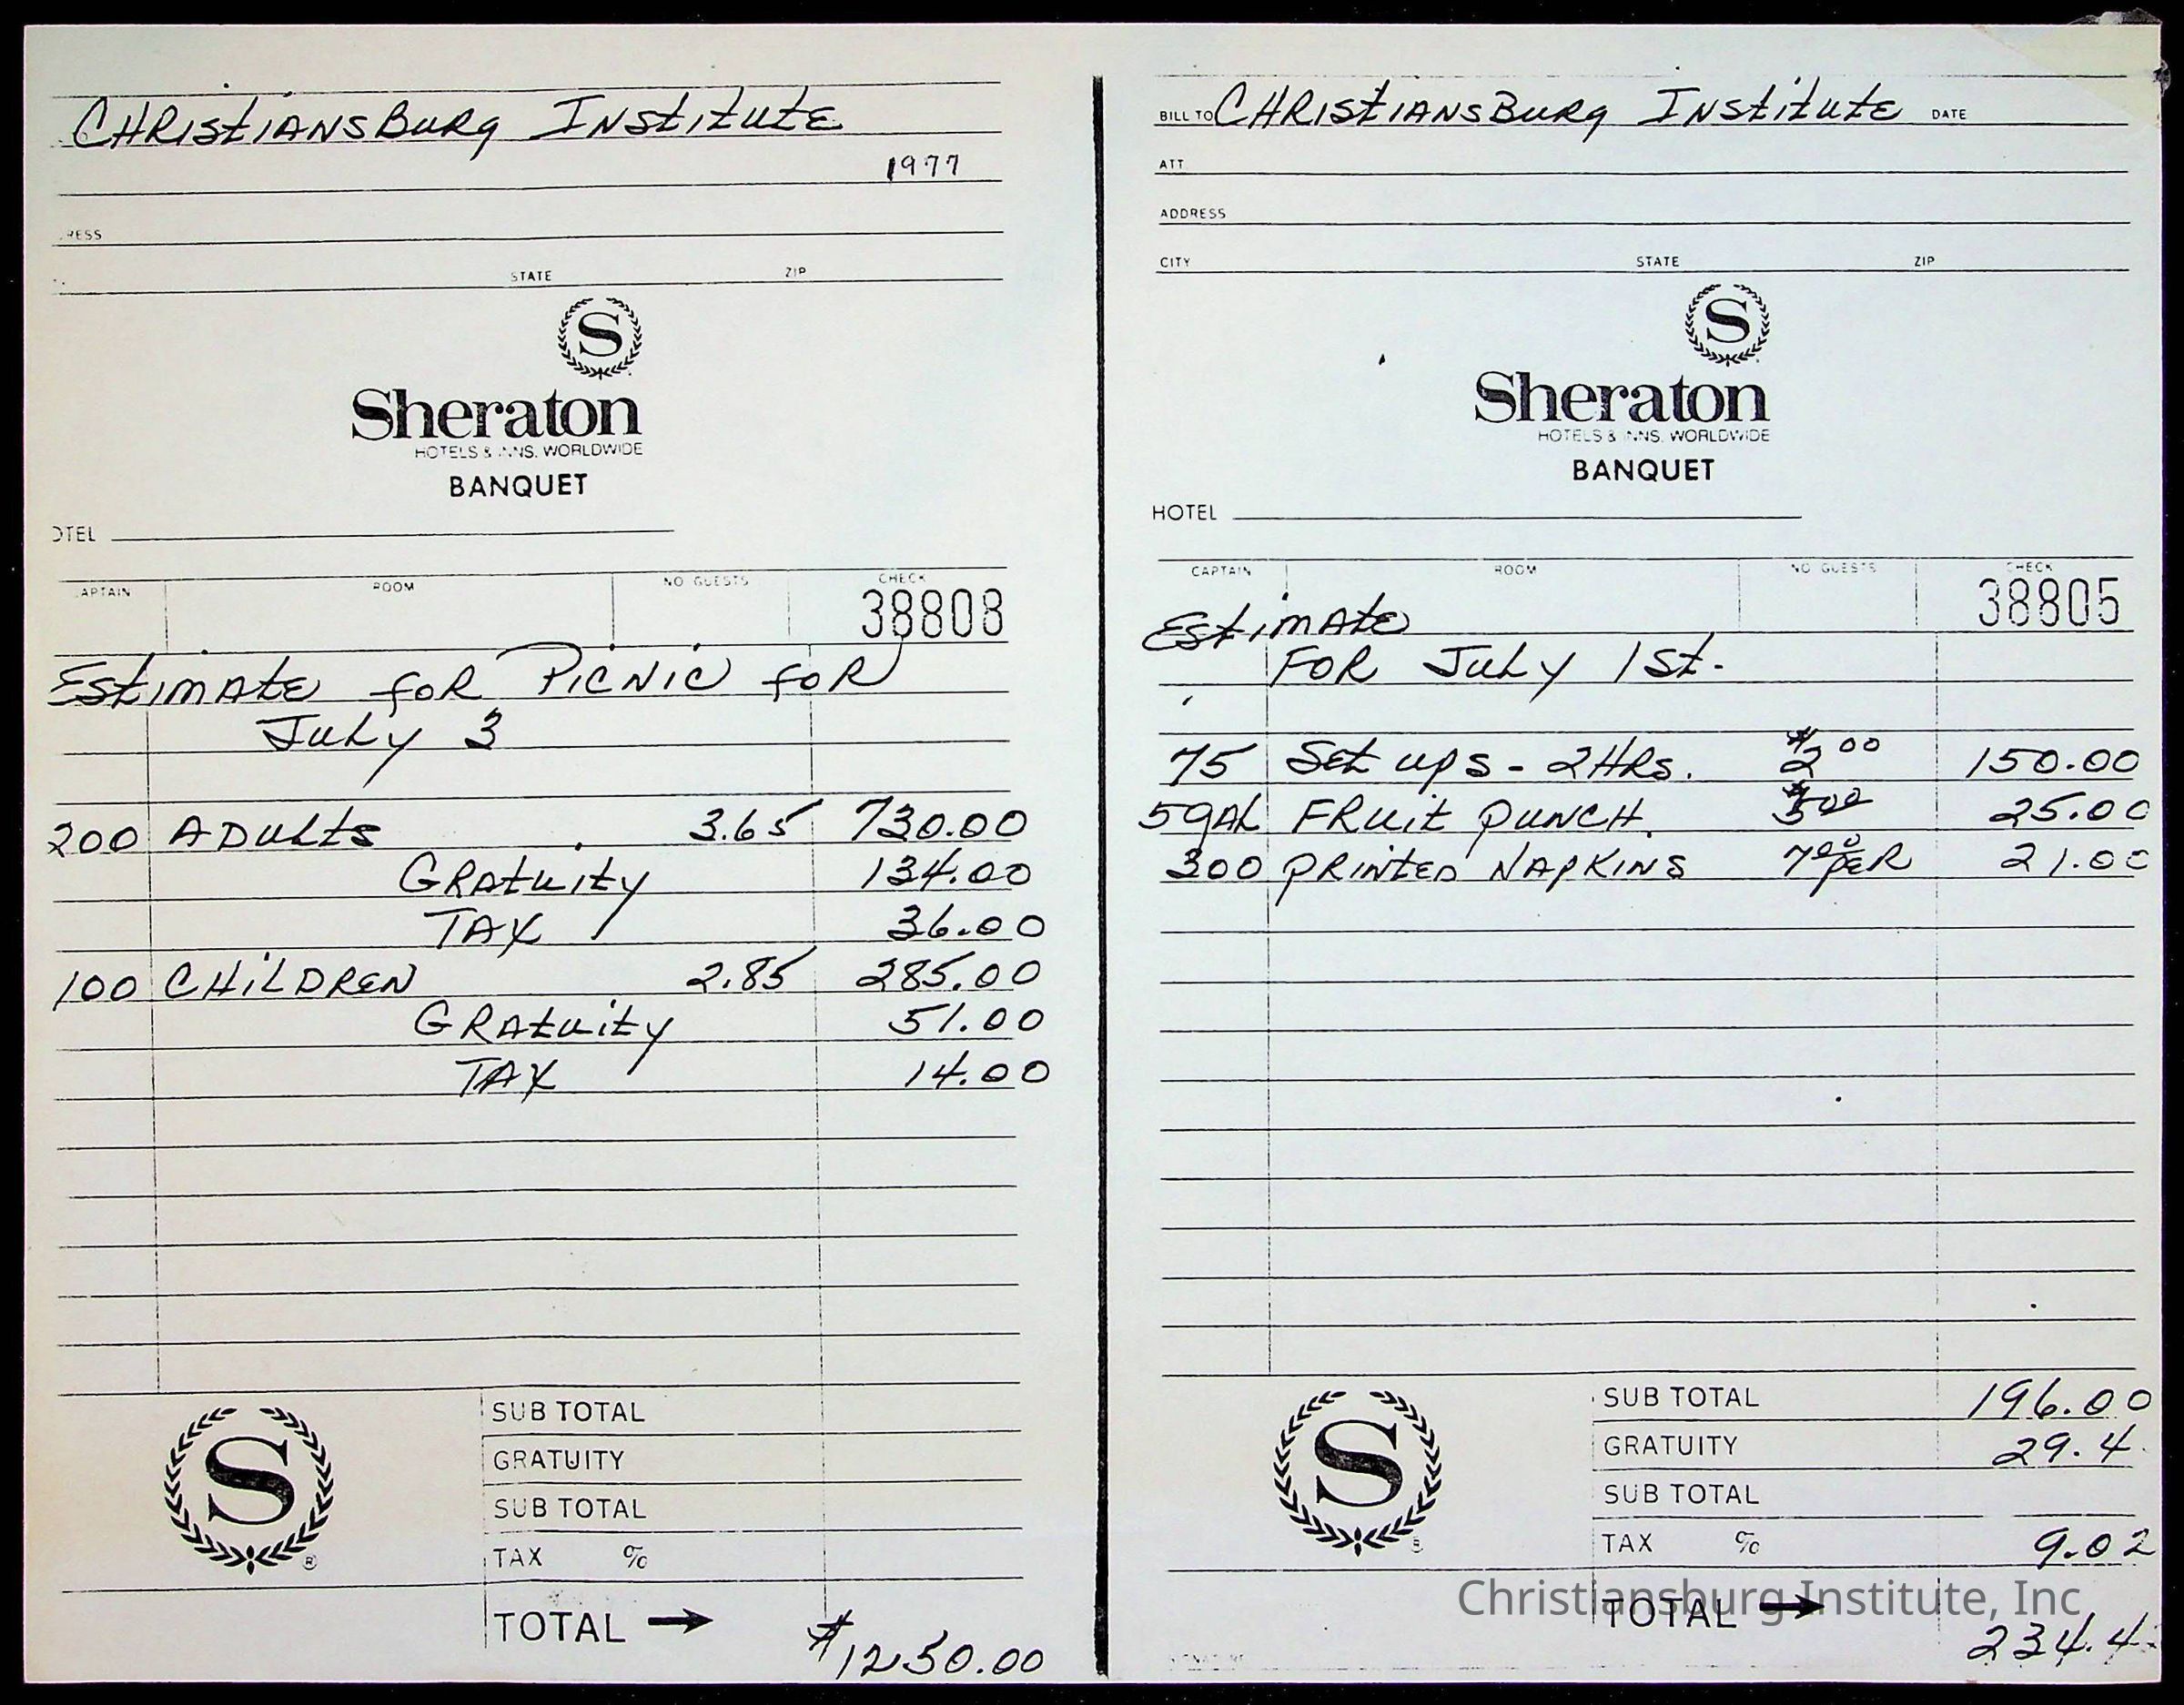 CHRIStIANSBURg INStItUtE
1977
RESS
STATE ZIP
S
Sheraton
HOTELS & INNS, WORLDWIDE
BANQUET
OTEL
APTAIN ROOM NO GUESTS CHECK
38808
EStimAtE foR PICNIC foR
JuLy 3
200 ADuLts 3.65 730.00
GRAtuity 134.00
TAX 36.00
100 CHiLDREN 2.85 285.00
GRAtuity 51.00
TAX 14.00
S
®
SUB TOTAL
GRATUITY
SUB TOTAL
TAX %
TOTAL → $1250.00
BILL TO CHRIStIANSBURg INStitutE DATE
ATT
ADDRESS
CITY STATE ZIP
S
Sheraton
HOTELS & INNS, WORLDWIDE
BANQUET
HOTEL
CAPTAIN ROOM NO GUESTS CHECK
38805
EStimAtE
FOR JuLy 1St.
75 SEt ups - 2HRs. $2.00 150.00
5gAL FRuit PuNCH $5.00 25.00
300 PRiNtED NApKiNS 7.00 pER 21.00
S
SUB TOTAL 196.00
GRATUITY 29.4
SUB TOTAL
TAX % 9.02
TOTAL → 234.4
SIGNATURE
Christiansburg Institute, Inc